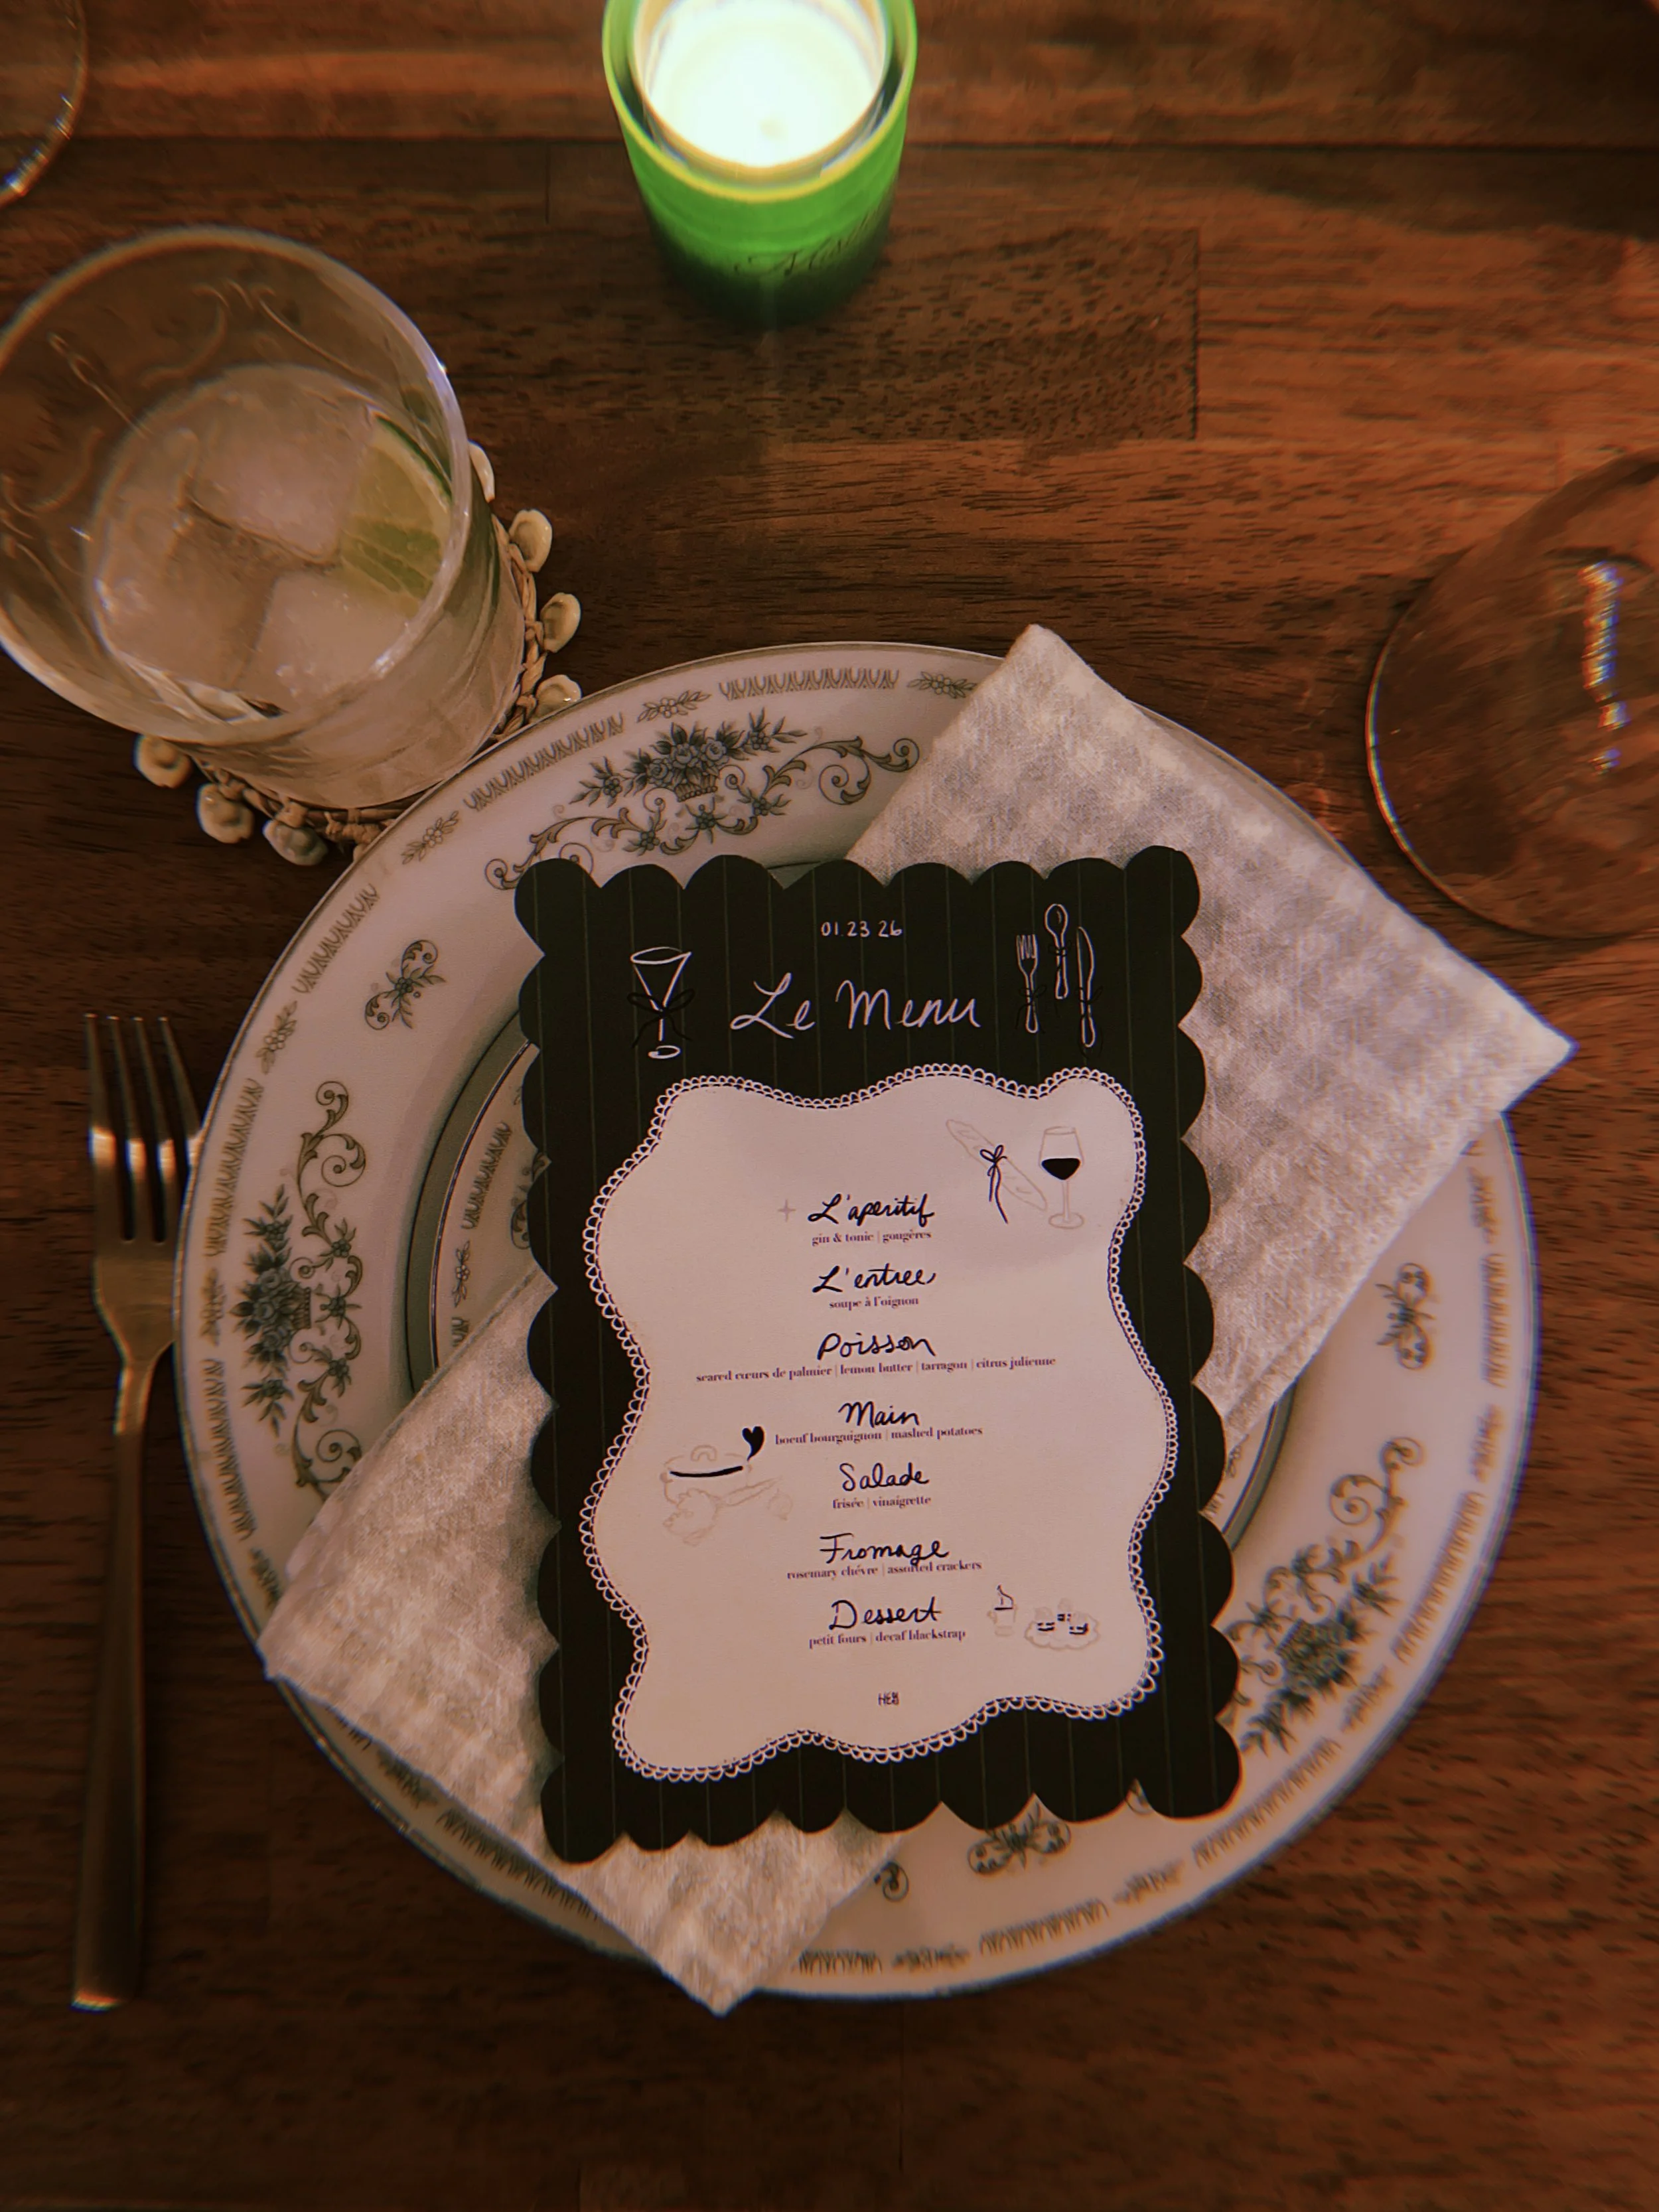 01.23 26
Le Menu
L'aperitif
gin & tonic | gougères
L'entree
soupe à l'oignon
Poisson
seared cœurs de palmier | lemon butter | tarragon | citrus julienne
Main
boeuf bourguignon | mashed potatoes
Salade
frisée | vinaigrette
Fromage
rosemary chévre | assorted crackers
Dessert
petit fours | decaf blackstrap